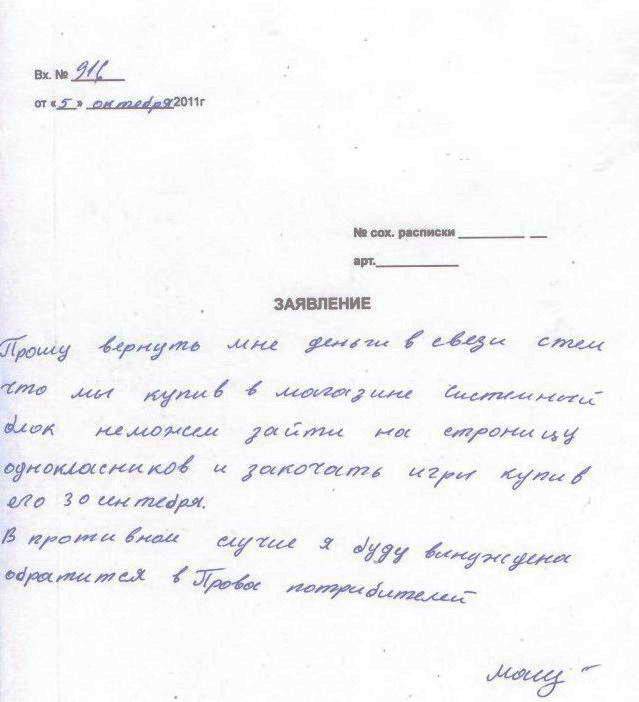 Вх. № 916
от «5» октября 2011г
№ сох. расписки
арт.
ЗАЯВЛЕНИЕ
Прошу вернуть мне деньги в свези стем
что мы купив в магазине систимный
блок неможем зайти на строницу
однокласников и закочать игры купив
его 30 сентебря.
В противном случие я буду вынуждена
обратится в Права потрибителей